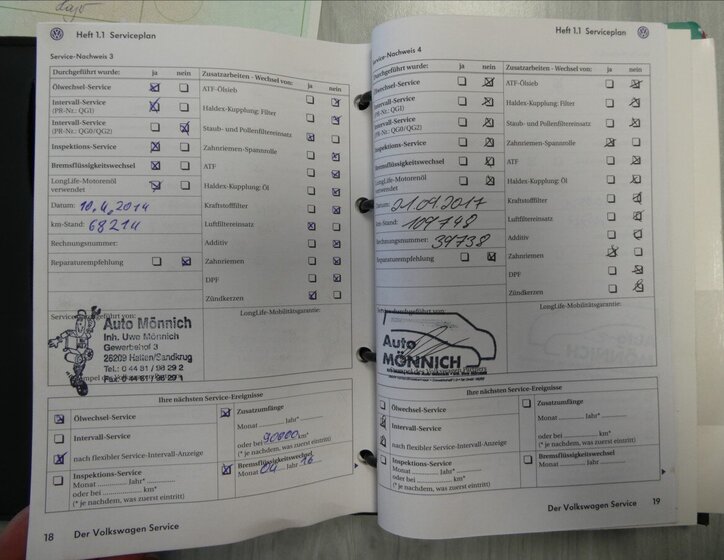 Heft 1.1 Serviceplan
Service-Nachweis 3
Durchgeführt wurde: ja nein
Ölwechsel-Service
Intervall-Service
(PR-Nr.: QG1)
Intervall-Service
(PR-Nr.: QG0/QG2)
Inspektions-Service
Bremsflüssigkeitswechsel
LongLife-Motorenöl
verwendet
Datum: 10.4.2014
km-Stand: 68214
Rechnungsnummer:
Reparaturempfehlung
Zusatzarbeiten - Wechsel von: ja nein
ATF-Ölsieb
Haldex-Kupplung: Filter
Staub- und Pollenfiltereinsatz
Zahnriemen-Spannrolle
ATF
Haldex-Kupplung: Öl
Kraftstofffilter
Luftfiltereinsatz
Additiv
Zahnriemen
DPF
Zündkerzen
Auto Mönnich
Inh. Uwe Mönnich
Gewerbehof 3
26209 Hatten/Sandkrug
Tel.: 0 44 81 / 98 29 2
Fax 0 44 81 / 98 29 1
LongLife-Mobilitätsgarantie:
Ihre nächsten Service-Ereignisse
Ölwechsel-Service
Intervall-Service
nach flexibler Service-Intervall-Anzeige
Inspektions-Service
Monat ........ Jahr* ........
oder bei ........ km*
(* je nachdem, was zuerst eintritt)
Zusatzumfänge
Monat ........ Jahr* ........
oder bei 90000 km*
(* je nachdem, was zuerst eintritt)
Bremsflüssigkeitswechsel
Monat 04 Jahr 16
18 Der Volkswagen Service
Heft 1.1 Serviceplan
Service-Nachweis 4
Durchgeführt wurde: ja nein
Ölwechsel-Service
Intervall-Service
(PR-Nr.: QG1)
Intervall-Service
(PR-Nr.: QG0/QG2)
Inspektions-Service
Bremsflüssigkeitswechsel
LongLife-Motorenöl
verwendet
Datum: 21.09.2017
km-Stand: 109748
Rechnungsnummer: 39738
Reparaturempfehlung
Zusatzarbeiten - Wechsel von: ja nein
ATF-Ölsieb
Haldex-Kupplung: Filter
Staub- und Pollenfiltereinsatz
Zahnriemen-Spannrolle
ATF
Haldex-Kupplung: Öl
Kraftstofffilter
Luftfiltereinsatz
Additiv
Zahnriemen
DPF
Zündkerzen
Auto
MÖNNICH
LongLife-Mobilitätsgarantie:
Ihre nächsten Service-Ereignisse
Ölwechsel-Service
Intervall-Service
nach flexibler Service-Intervall-Anzeige
Inspektions-Service
Monat ........ Jahr* ........
oder bei ........ km*
(* je nachdem, was zuerst eintritt)
Zusatzumfänge
Monat ........ Jahr* ........
oder bei ........ km*
(* je nachdem, was zuerst eintritt)
Bremsflüssigkeitswechsel
Monat ........ Jahr ........
Der Volkswagen Service 19